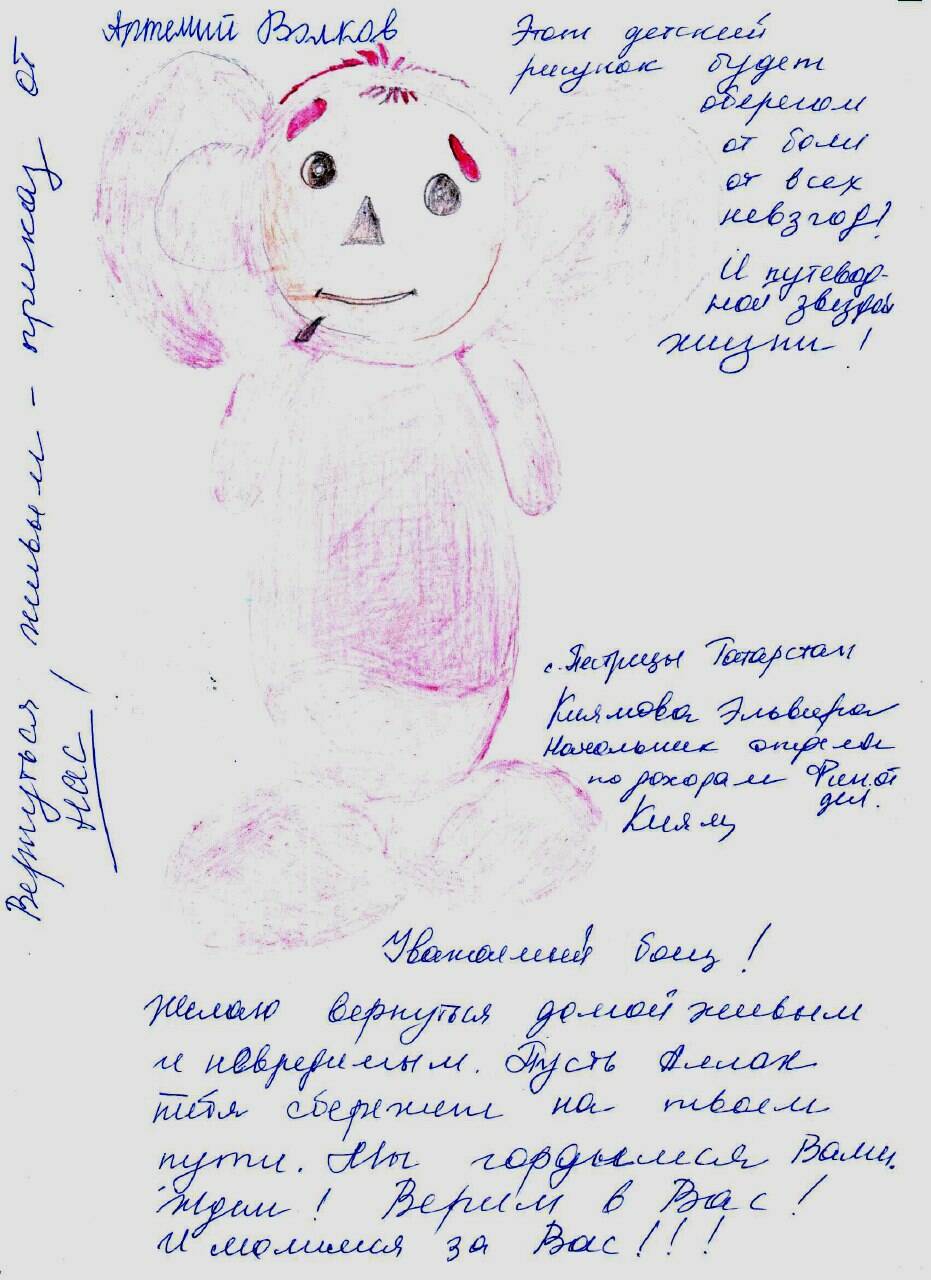 Артемий Волков
Этот детский
рисунок будет
оберегом
от боли
от всех
невзгод!
И путевод-
ной звездой
жизни!
Вернуться живым – приказ от
нас!
с. Пестрицы Татарстан
Киямова Эльвира
Начальник отдела
по доходам Фин.от
дел.
Киям
Уважаемый боец!
Желаю вернуться домой живым
и невредимым. Пусть Аллах
тебя сбережет на твоем
пути. Мы гордимся Вами.
Ждем! Верим в Вас!
И молимся за Вас!!!